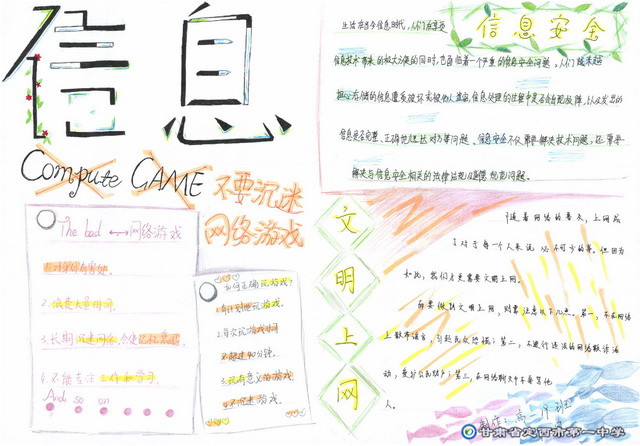 信息
Compute GAME
不要沉迷
网络游戏
The bad ↔ 网络游戏
1.对身体有害处。
2.浪费大量时间。
3.长期沉迷网络,会使记忆衰退
4.不能专注工作和学习。
And so on
如何正确玩游戏?
1.有计划地玩游戏。
2.每次玩游戏时间
不超过40分钟。
3.玩有意义的游戏
不沉迷游戏。
信息安全
生活在当今信息时代,人们在享受
信息技术带来的极大方便的同时,也面临着一个严重的信息安全问题。人们越来越
担心存储的信息遭受破坏或被他人盗窃,信息处理的过程中是否会出现故障,以及发出的
信息是否完整、正确地送达对方等问题。信息安全不仅需要解决技术问题,还需要
解决与信息安全相关的法律法规以及道德规范问题。
文明上网
随着网络的普及,上网成
了对于每个人来说必不可少的事。但因为
如此,我们才更需要文明上网。
而要做到文明上网,则需注意以下几点。第一,不在网
上散布谣言,引起民众恐慌;第二,不进行违法的网络欺诈活
动,爱护公民财产;第三,在网络聊天中不辱骂他
人。
制作:高二19班
甘肃省定西市第一中学